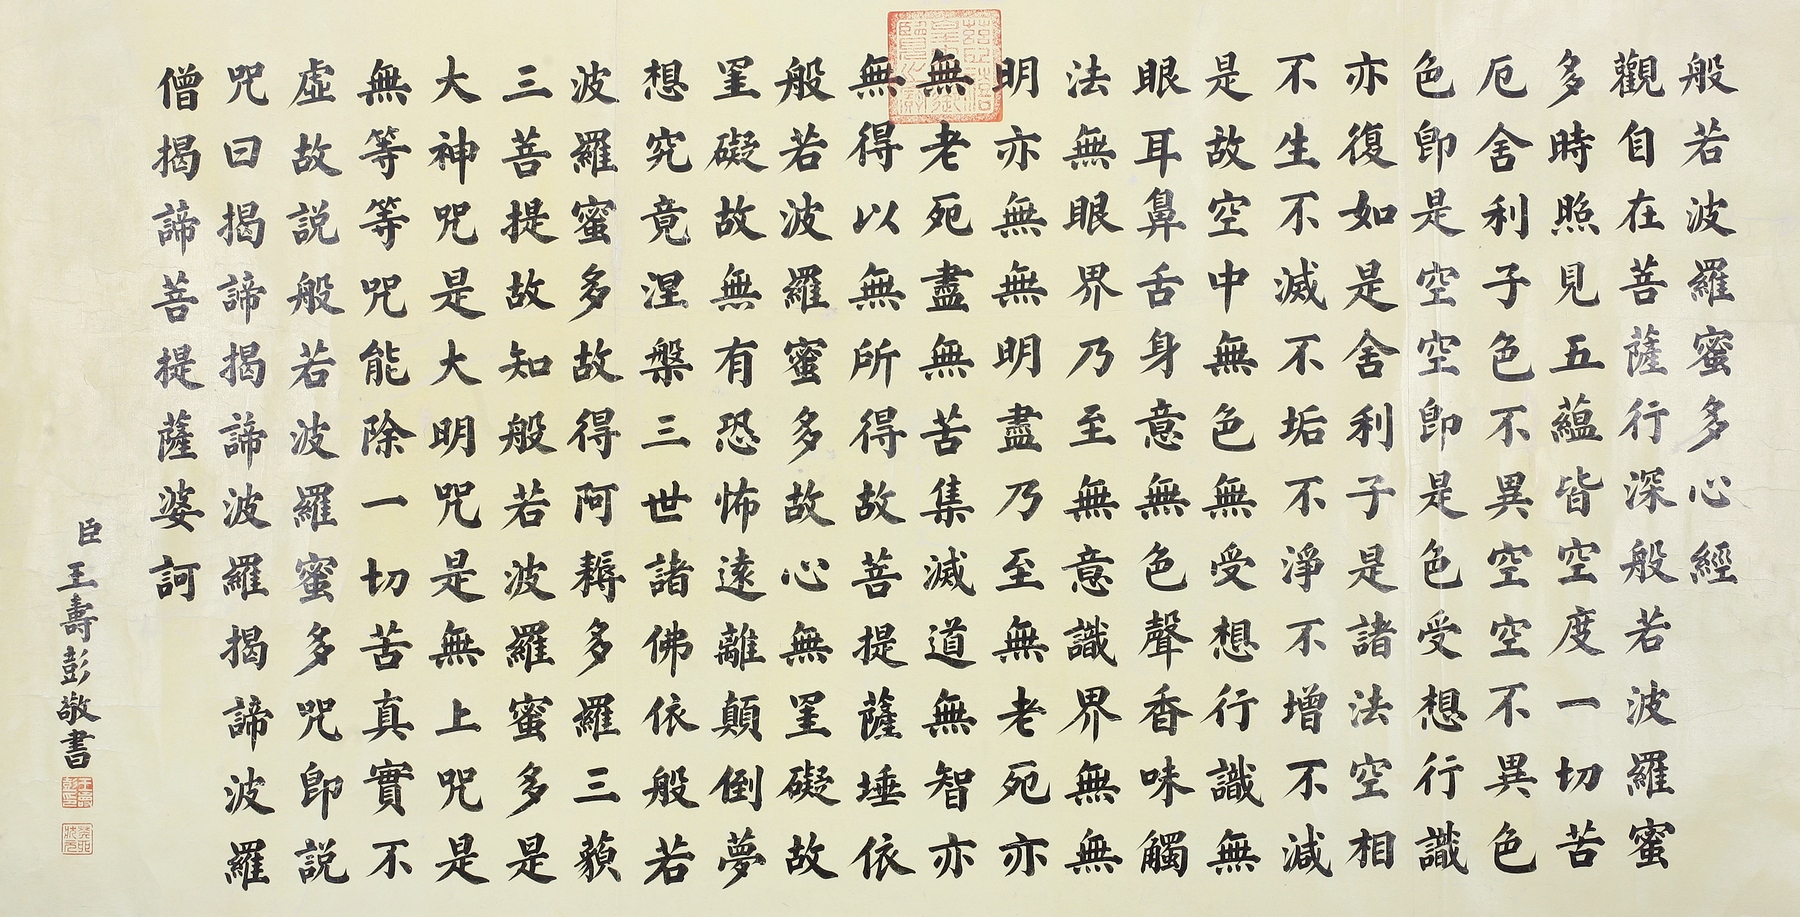 般若波羅蜜多心經
觀自在菩薩行深般若波羅蜜
多時照見五蘊皆空度一切苦
厄舍利子色不異空空不異色
色即是空空即是色受想行識
亦復如是舍利子是諸法空相
不生不滅不垢不淨不增不減
是故空中無色無受想行識無
眼耳鼻舌身意無色聲香味觸
法無眼界乃至無意識界無無
明亦無無明盡乃至無老死亦
無老死盡無苦集滅道無智亦
無得以無所得故菩提薩埵依
般若波羅蜜多故心無罣礙故
罣礙故無有恐怖遠離顛倒夢
想究竟涅槃三世諸佛依般若
波羅蜜多故得阿耨多羅三藐
三菩提故知般若波羅蜜多是
大神咒是大明咒是無上咒是
無等等咒能除一切苦真實不
虛故說般若波羅蜜多咒即說
咒曰揭諦揭諦波羅揭諦波羅
僧揭諦菩提薩婆訶
臣王壽彭敬書
王壽彭印